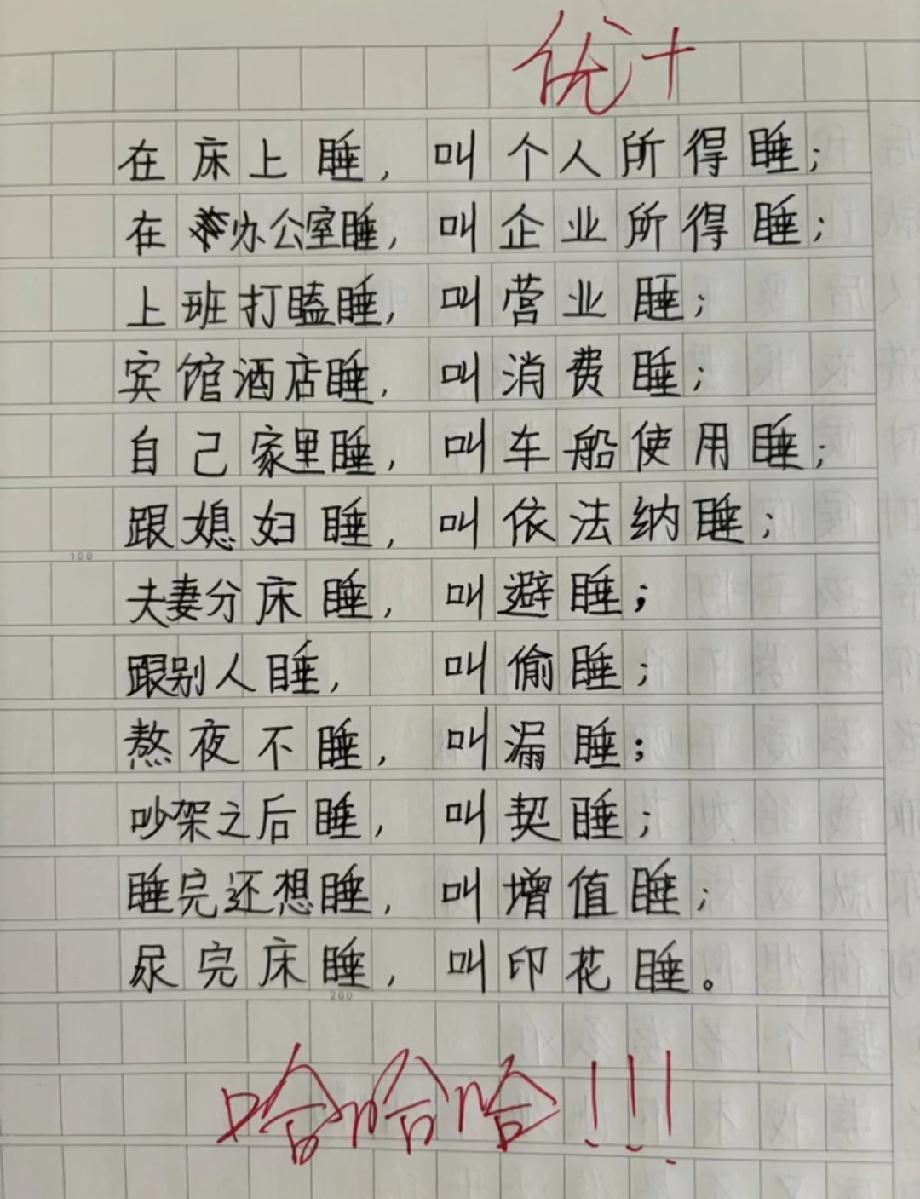 优+
在床上睡，叫个人所得睡；
在办公室睡，叫企业所得睡；
上班打瞌睡，叫营业睡；
宾馆酒店睡，叫消费睡；
自己家里睡，叫车船使用睡；
跟媳妇睡，叫依法纳睡；
100
夫妻分床睡，叫避睡；
跟别人睡，叫偷睡；
熬夜不睡，叫漏睡；
吵架之后睡，叫契睡；
睡完还想睡，叫增值睡；
尿完床睡，叫印花睡。
200
哈哈哈！！！